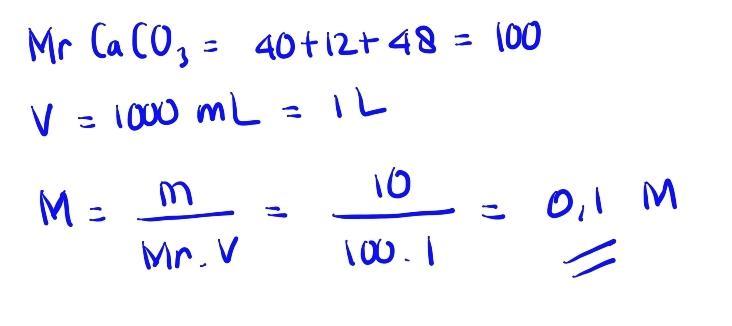 Mr CaCO₃ = 40+12+48 = 100
V = 1000 mL = 1 L
M = m / Mr . V = 10 / 100 . 1 = 0,1 M